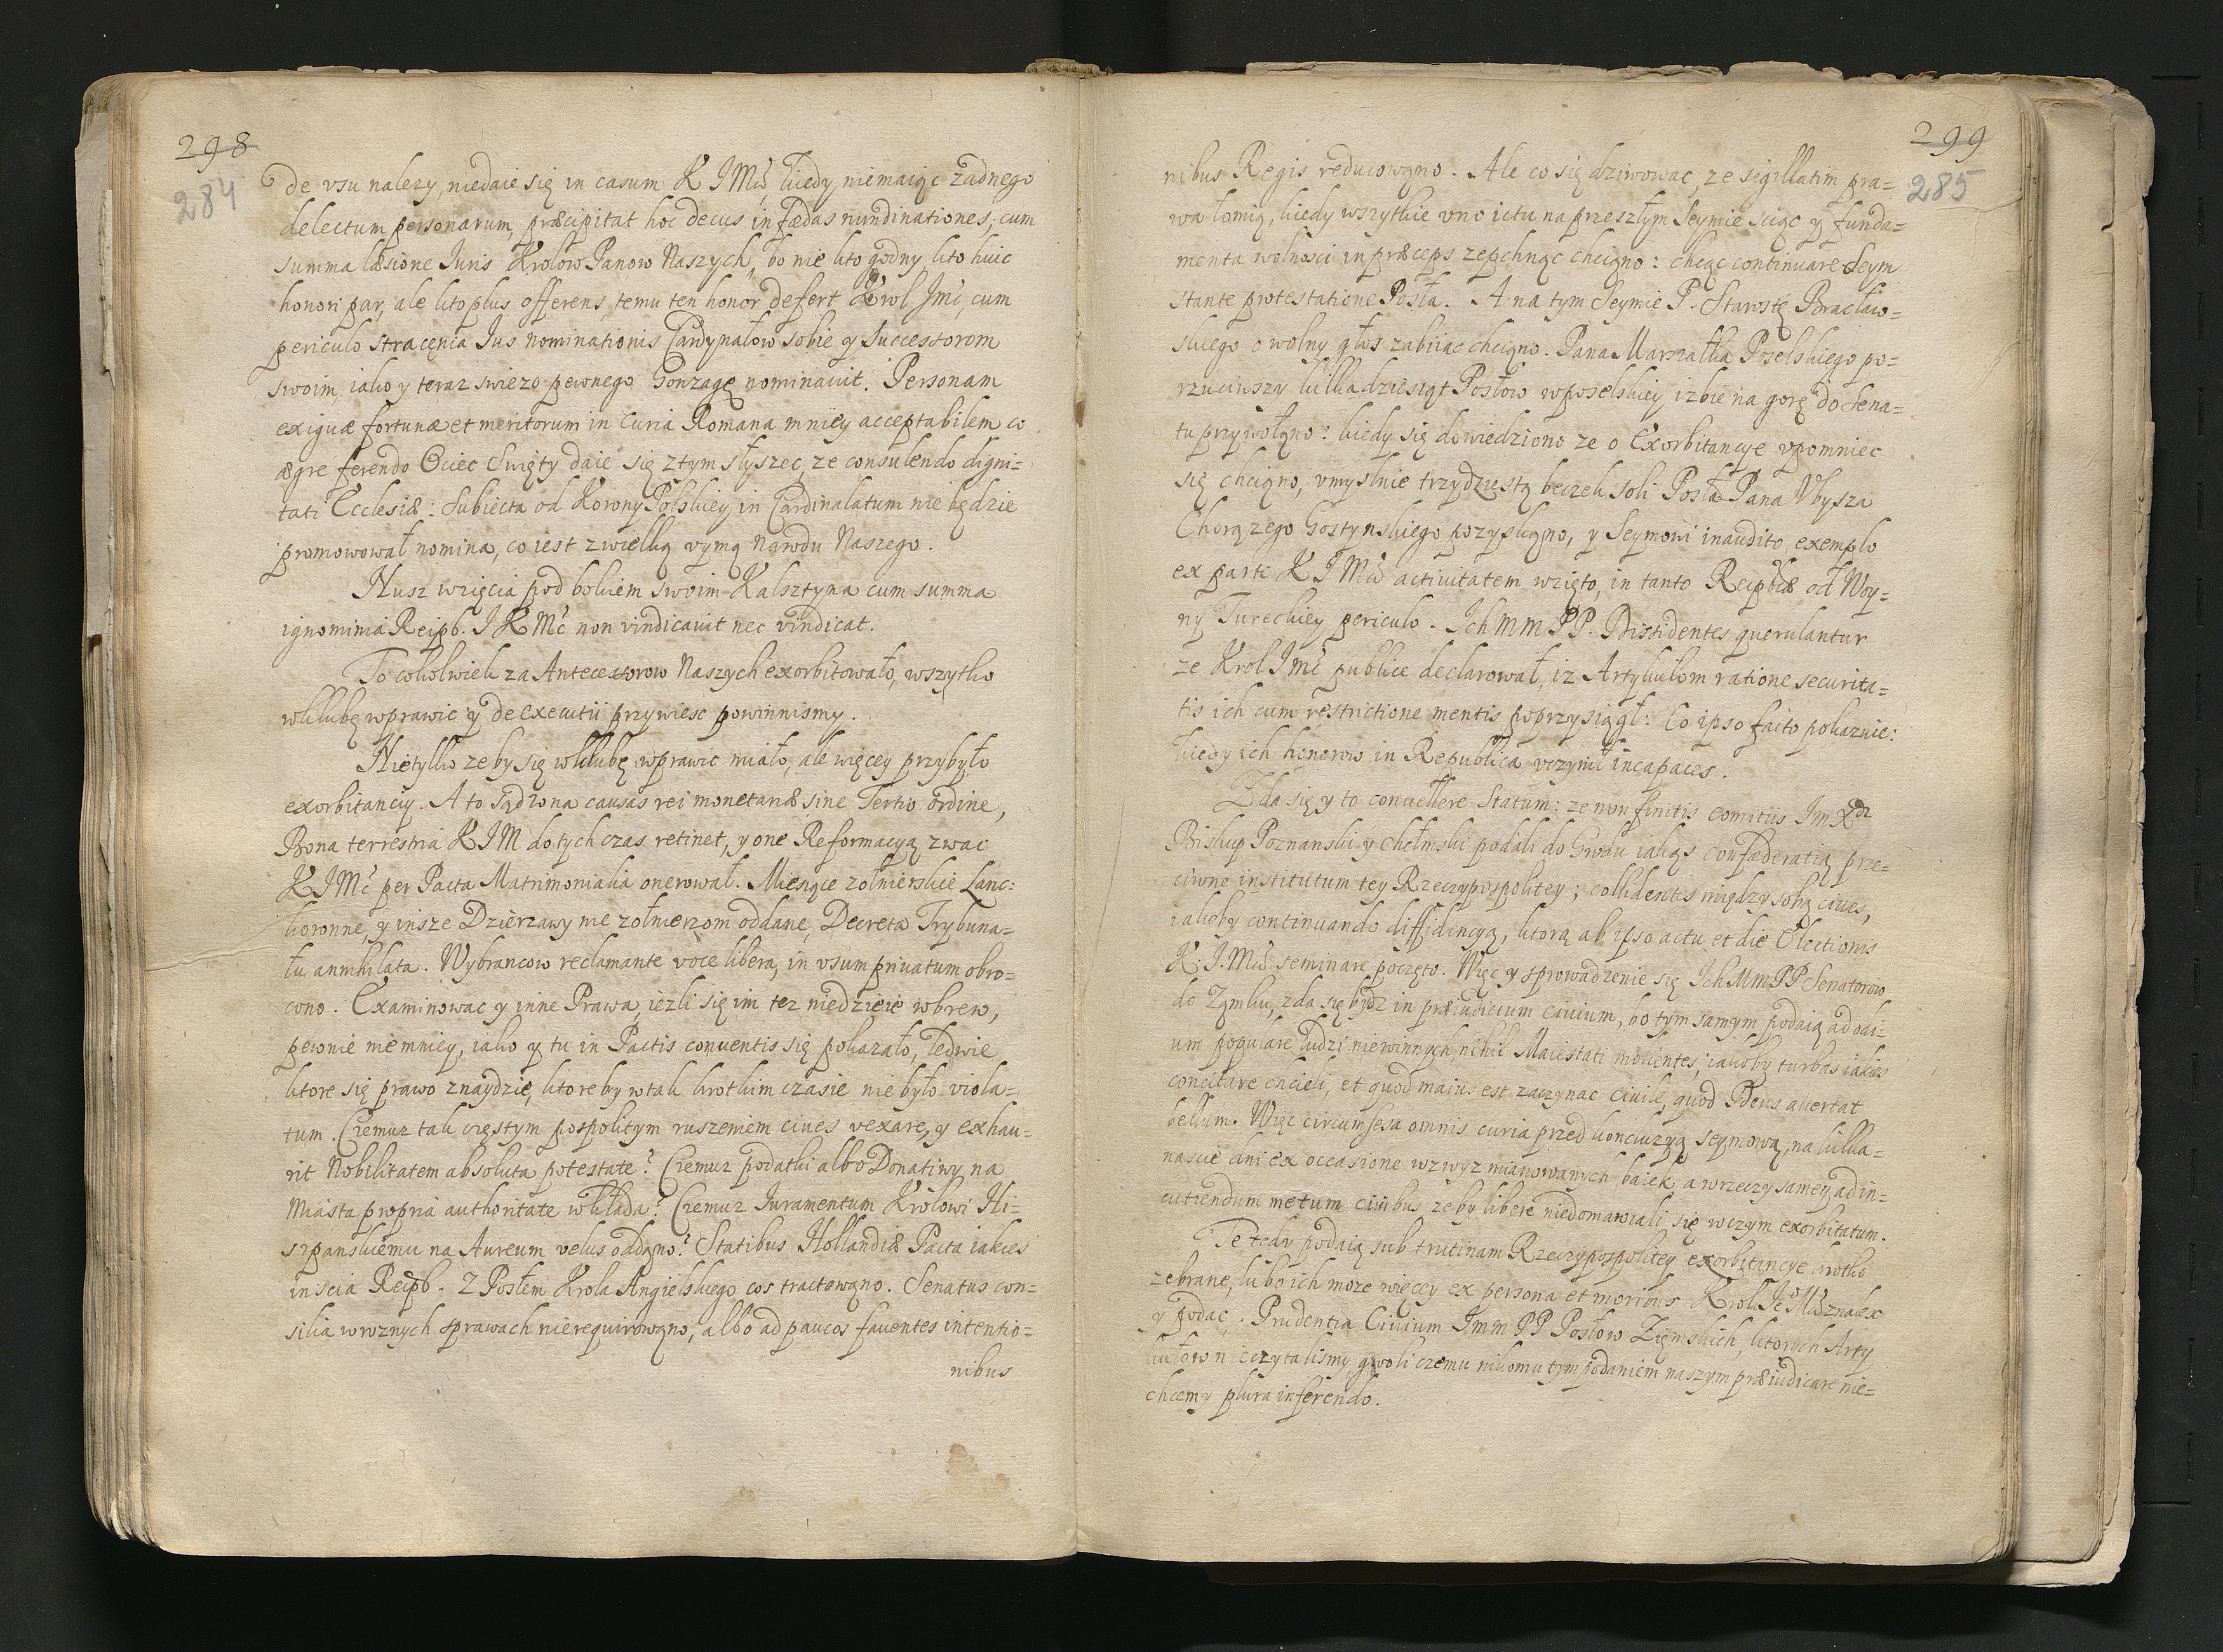 298
284
de vsu nalezy, niedaie się in casum K J Mci kiedy niemaiąc zadnego
delectum personarum, præcipitat hoc decus in fædas nundinationes, cum
summa læsione Iuris Krolow Panow Naszych, bo nie kto godny kto huic
honori par, ale kto plus offerens, temu ten honor defert Krol Jmć, cum
periculo stracęnia Ius nominationis Cardynałow sobie y Successorom
swoim, iako y teraz swiezo pewnego Gonzagę nominauit. Personam
exiguæ fortunæ et meritorum in Curia Romana mniey acceptabilem co
ægre ferendo Ociec Swięty daie się z tym słyszec, ze consulendo digni=
tati Ecclesiæ: Subiecta od Korony Polskiey in Cardinalatum nie będzie
promowował nomina, co iest z wielką vymą Narodu Naszego.
Nusz wzięcia pod bokiem swoim Kalsztyna cum summa
ignominia Reipb. J K Mć non vindicauit nec vindicat.
To cokolwiek za Antecessorow Naszych exorbitowało, wszytko
wklubę wprawic y de executii przywiesc powinnismy.
Nie tylko zeby się wklubę wprawic miało, ale więcey przybyło
exorbitanciy. A to Sądzona causas rei monetariæ sine Tertio ordine,
Bona terrestria K J M do tych czas retinet, y one Reformacyą zwac
K J Mć per Pacta Matrimonialia onerował. Miesięce zołnierskie Lanc=
koronne, y insze Dzierzawy nie zołnierzom oddane, Decreta Trybuna=
łu annihilata. Wybrancow reclamante voce libera, in vsum priuatum obro=
cono. Examinowac y inne Prawa, iezli się im tez niedzieie wbrew,
pewnie niemniey, iako y tu in Pactis conuentis się pokazało, ledwie
ktore się prawo znaydzie, ktore by w tak krotkim czasie nie było viola=
tum. Czemuz tak częstym pospolitym ruszeniem ciues vexare, y exhau=
rit Nobilitatem absoluta potestate? Czemuz podatki albo Donatiwy na
Miasta propria authoritate wkłada? Czemuz Iuramentum Krolowi Hi=
szpanskiemu na Aureum velus oddąno? Statibus Hollandiæ Pacta iakies
inscia Reipb. Z Posłem Krola Angielskiego cos tractowąno. Senatus con=
silia w roznych sprawach nierequirowąno, albo ad paucos fauentes intentio=
nibus
299
285
nibus Regis reducowąno. Ale co się dziwowac, ze sigillatim pra=
wa łomią, kiedy wszytkie vno ictu na przeszłym Seymie sciąc y funda=
menta wolnosci in præceps zepchnąc chciąno: chcąc continuare Seym
stante protestatione Posła. A na tym Seymie P. Starostę Bracław=
skiego o wolny głos zabiiac chciąno. Pana Marszałka Poselskiego po=
rzuciwszy kilkadziesiąt Posłow w poselskiey izbie na gorę do Sena=
tu przywołąno: kiedy się dowiedziono ze o Exorbitancye vpomniec
się chciąno, vmyslnie trzydziestą beczek soli Posła Pana Vbysza
Chorązego Gostynskiego pozyskąno, y Seymowi inaudito exemplo
ex parte K J Mci actiuitatem wzięto, in tanto Reipbcæ od Woy=
ny Tureckiey periculo. Ich MM PP. Dissidentes querulantur
ze Krol Jmć publice declarował, iz Artykułom ratione securita=
tis ich cum restrictione mentis poprzysiągł: Co ipso facto pokazuie:
kiedy ich honorow in Republica vczynił incapaces.
Zda się y to conuellere Statum: ze non finitis comitiis Jm Xdz
Biskup Poznanski y Chełmski podali do Grodu iakąs confæderatią prze=
ciwne institutum tey Rzeczypospolitey; collidentes między sobą ciues,
iakoby continuando diffidencyą, ktorą ab ipso actu et die Electionis
K. J. Mci seminare poczęto. Więc y sprowadzenie się Ich MM PP Senatorow
do Zamku, zda się bydz in præiudicium ciuium, bo tym samym podaią ad odi=
um populare ludzi niewinnych, nihil Maiestati molientes, iakoby turbas iakies
concitare chcieli, et quod maius est zaczynac ciuile, quod Deus auertat
bellum. Więc circumsesa omnis curia przed konclusyą seymową, na kilka=
nascie dni ex occasione wzwyz mianowanych baiek, a wrzeczy samey ad in=
cutiendum metum ciuibus, zeby libere niedomawiali się wczym exorbitatum.
Te tedy podaią sub trutinam Rzeczypospolitey exorbitancye krotko
zebrane, lubo ich moze więcey ex persona et moribus Krola Je Mci znalesc
y podac. Prudentia Ciuium Jmm PP Posłow Ziemskich, ktorych Arty
kułow nieczytalismy gwoli czemu nikomu tym podaniem naszym præiudicare nie=
chcemy plura inferendo.